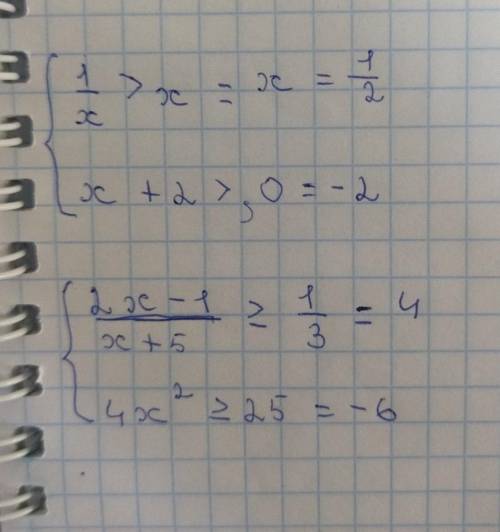 1/x > x = x = 1/2
x + 2 >, 0 = -2
(2x - 1)/(x + 5) ≥ 1/3 = 4
4x² ≥ 25 = -6